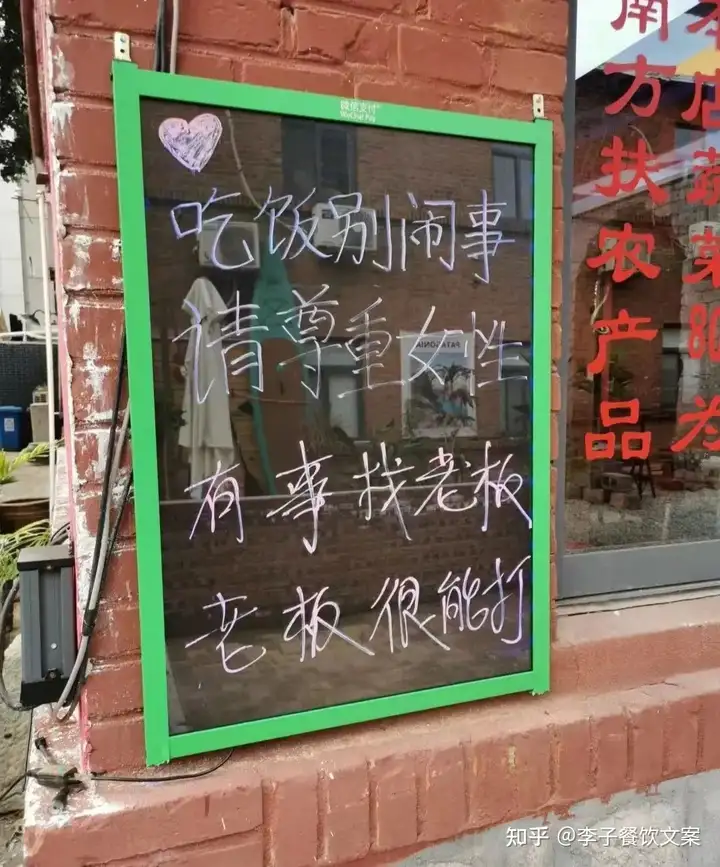 微信支付
WeChat Pay
吃饭别闹事
请尊重女性
有事找老板
老板很能打
本店蔬菜80
为
南方扶农产品
PATAGONIA
知乎 @李子餐饮文案